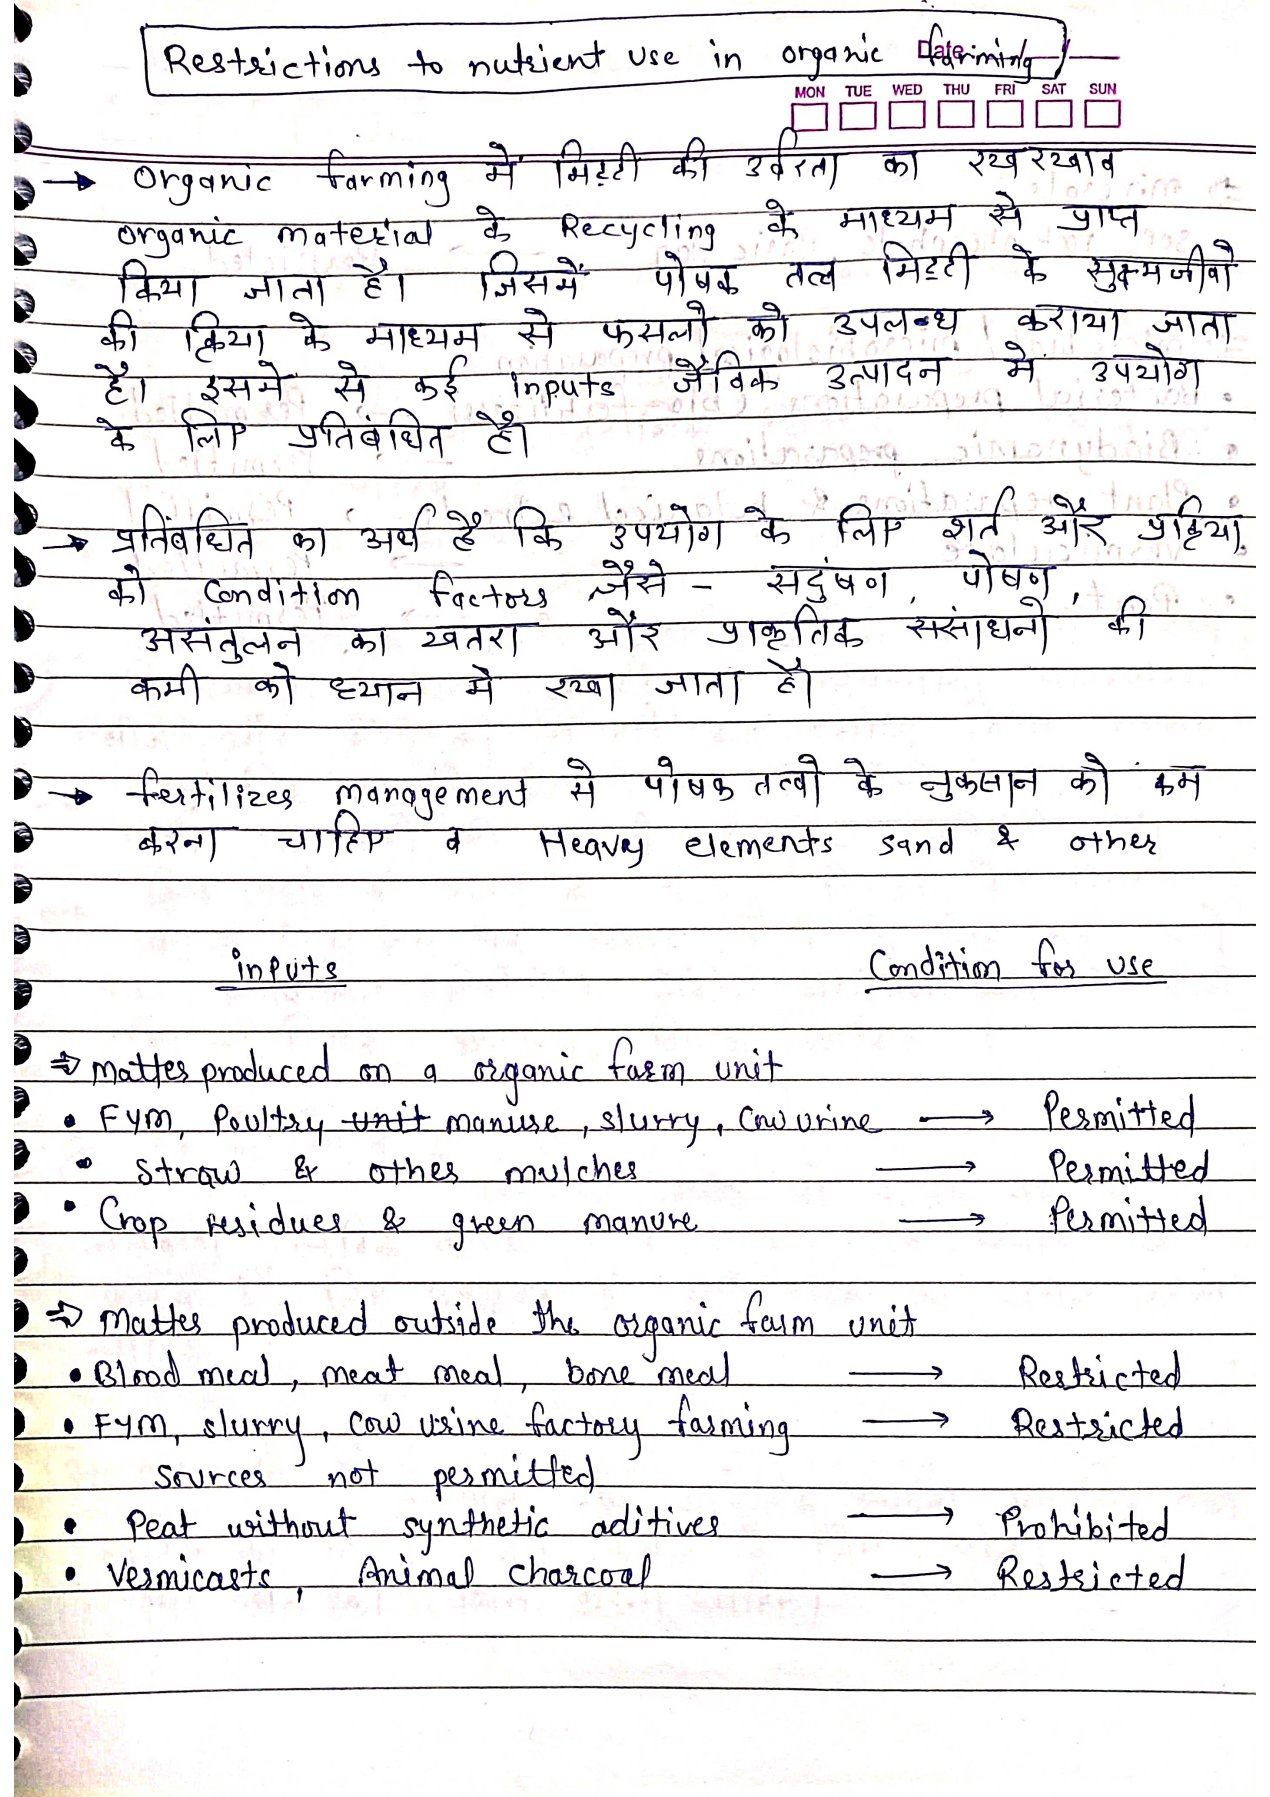 Restrictions to nutrient use in organic farming
Date
MON TUE WED THU FRI SAT SUN
→ Organic farming में मिट्टी की उर्वरता का रखरखाव
organic material के Recycling के माध्यम से प्राप्त
किया जाता है। जिसमें पोषक तत्व मिट्टी के सुक्ष्मजीवो
की क्रिया के माध्यम से फसलो को उपलब्ध कराया जाता
है। इसमे से कई inputs जैविक उत्पादन मे उपयोग
के लिए प्रतिबंधित है।
→ प्रतिबंधित का अर्थ है कि उपयोग के लिए शर्त और प्रक्रिया
को Condition factors जैसे - सदुंषण, पोषण,
असंतुलन का खतरा और प्राकृतिक संसाधनो की
कमी को ध्यान मे रखा जाता है।
→ fertilizer management से पोषक तत्वो के नुकसान को कम
करना चाहिए व Heavy elements sand & other
inputs Condition for use
⇒ matter produced on a organic farm unit
• FYM, Poultry unit manure, slurry, Cow urine → Permitted
• Straw & other mulches → Permitted
• Crop residues & green manure → Permitted
⇒ matter produced outside the organic farm unit
• Blood meal, meat meal, bone meal → Restricted
• FYM, slurry, cow urine factory farming → Restricted
sources not permitted
• Peat without synthetic aditives → Prohibited
• Vermicasts, Animal charcoal → Restricted